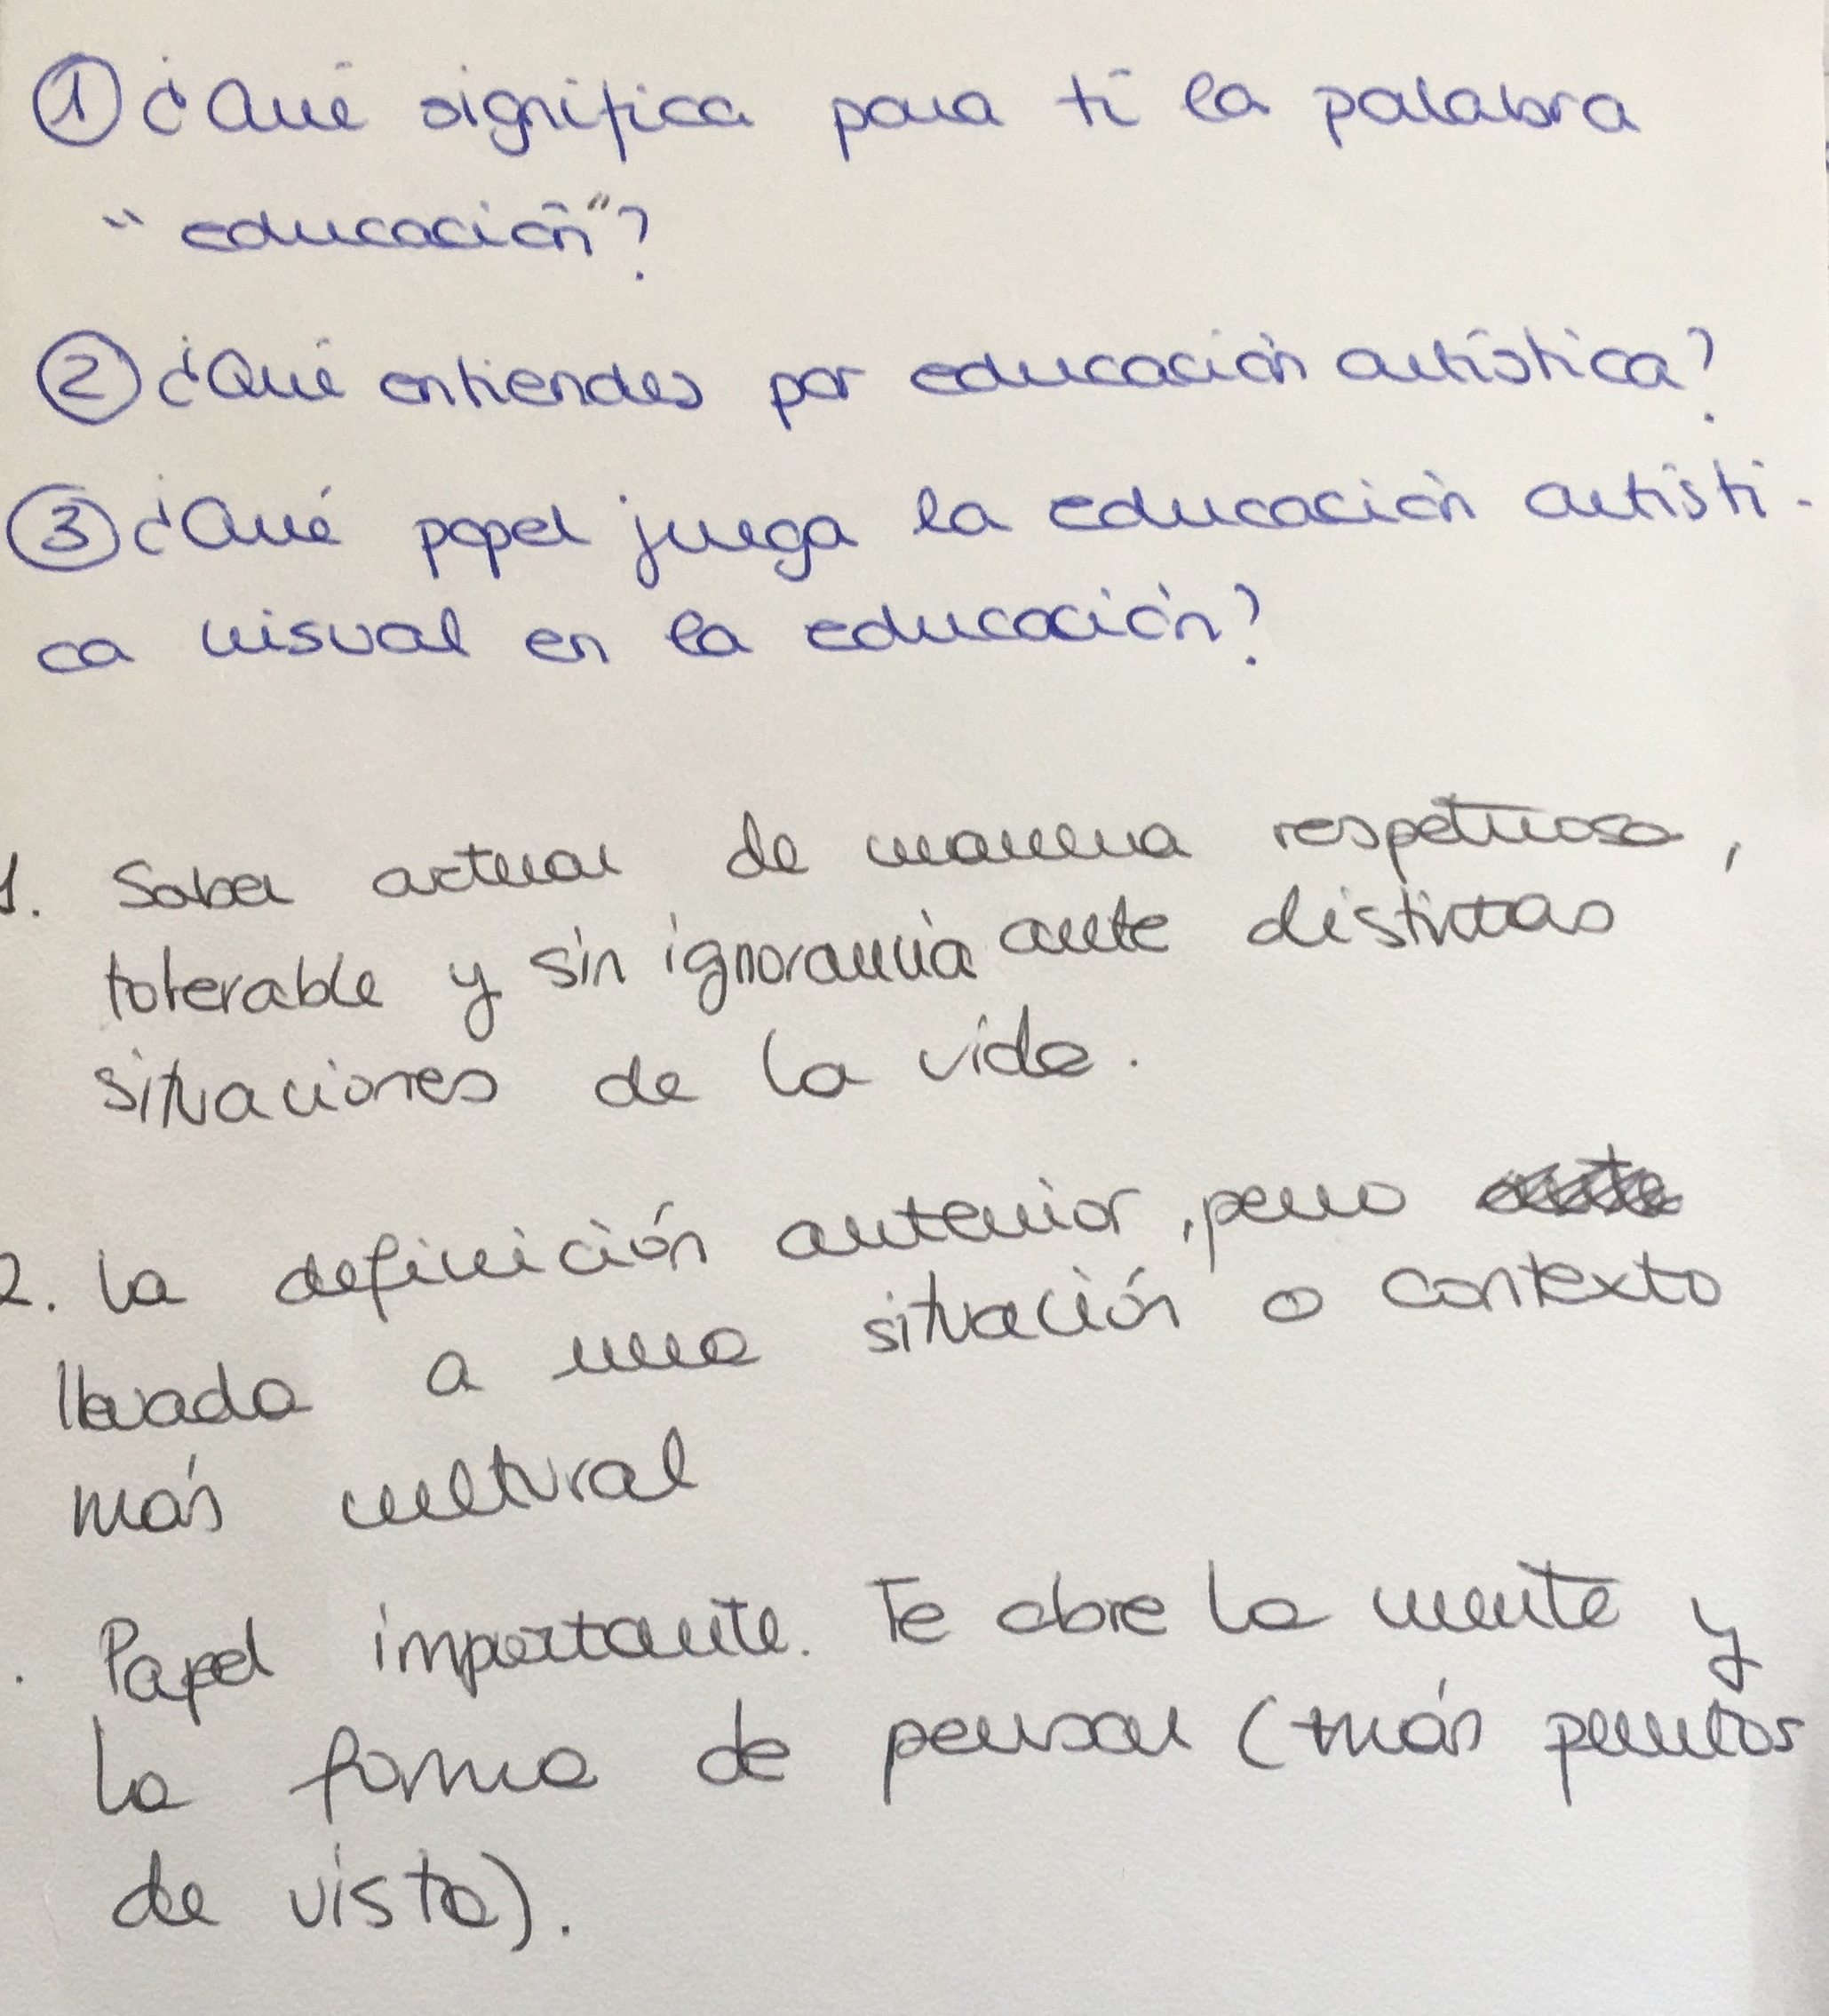 ① ¿Qué significa para tí la palabra
"educación"?
② ¿Qué entiendes por educación artística?
③ ¿Qué papel juega la educación artísti-
ca visual en la educación?
1. Saber actuar de manera respetuosa,
tolerable y sin ignorancia ante distintas
situaciones de la vida.
2. La definición anterior, pero
llevada a una situación o contexto
más cultural
. Papel importante. Te abre la mente y
la forma de pensar (más puntos
de vista).